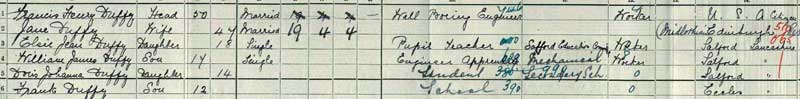 Francis Henry Duffy Head 50 Married — Well Boring Engineer Worker U. S. A Citizen
2 Jane Duffy Wife 47 Married 19 4 4 (Midlothian Edinburgh
3 Elsie Jean Duffy Daughter 18 Single Pupil Teacher Salford Education Worker Salford Lancashire
4 William James Duffy Son 17 Single Engineer Apprentice Mechanical Worker Salford
5 Doris Johanna Duffy Daughter 14 Student 390 Secondary Sch. 0 Salford
6 Frank Duffy Son 12 School 390 0 Eccles